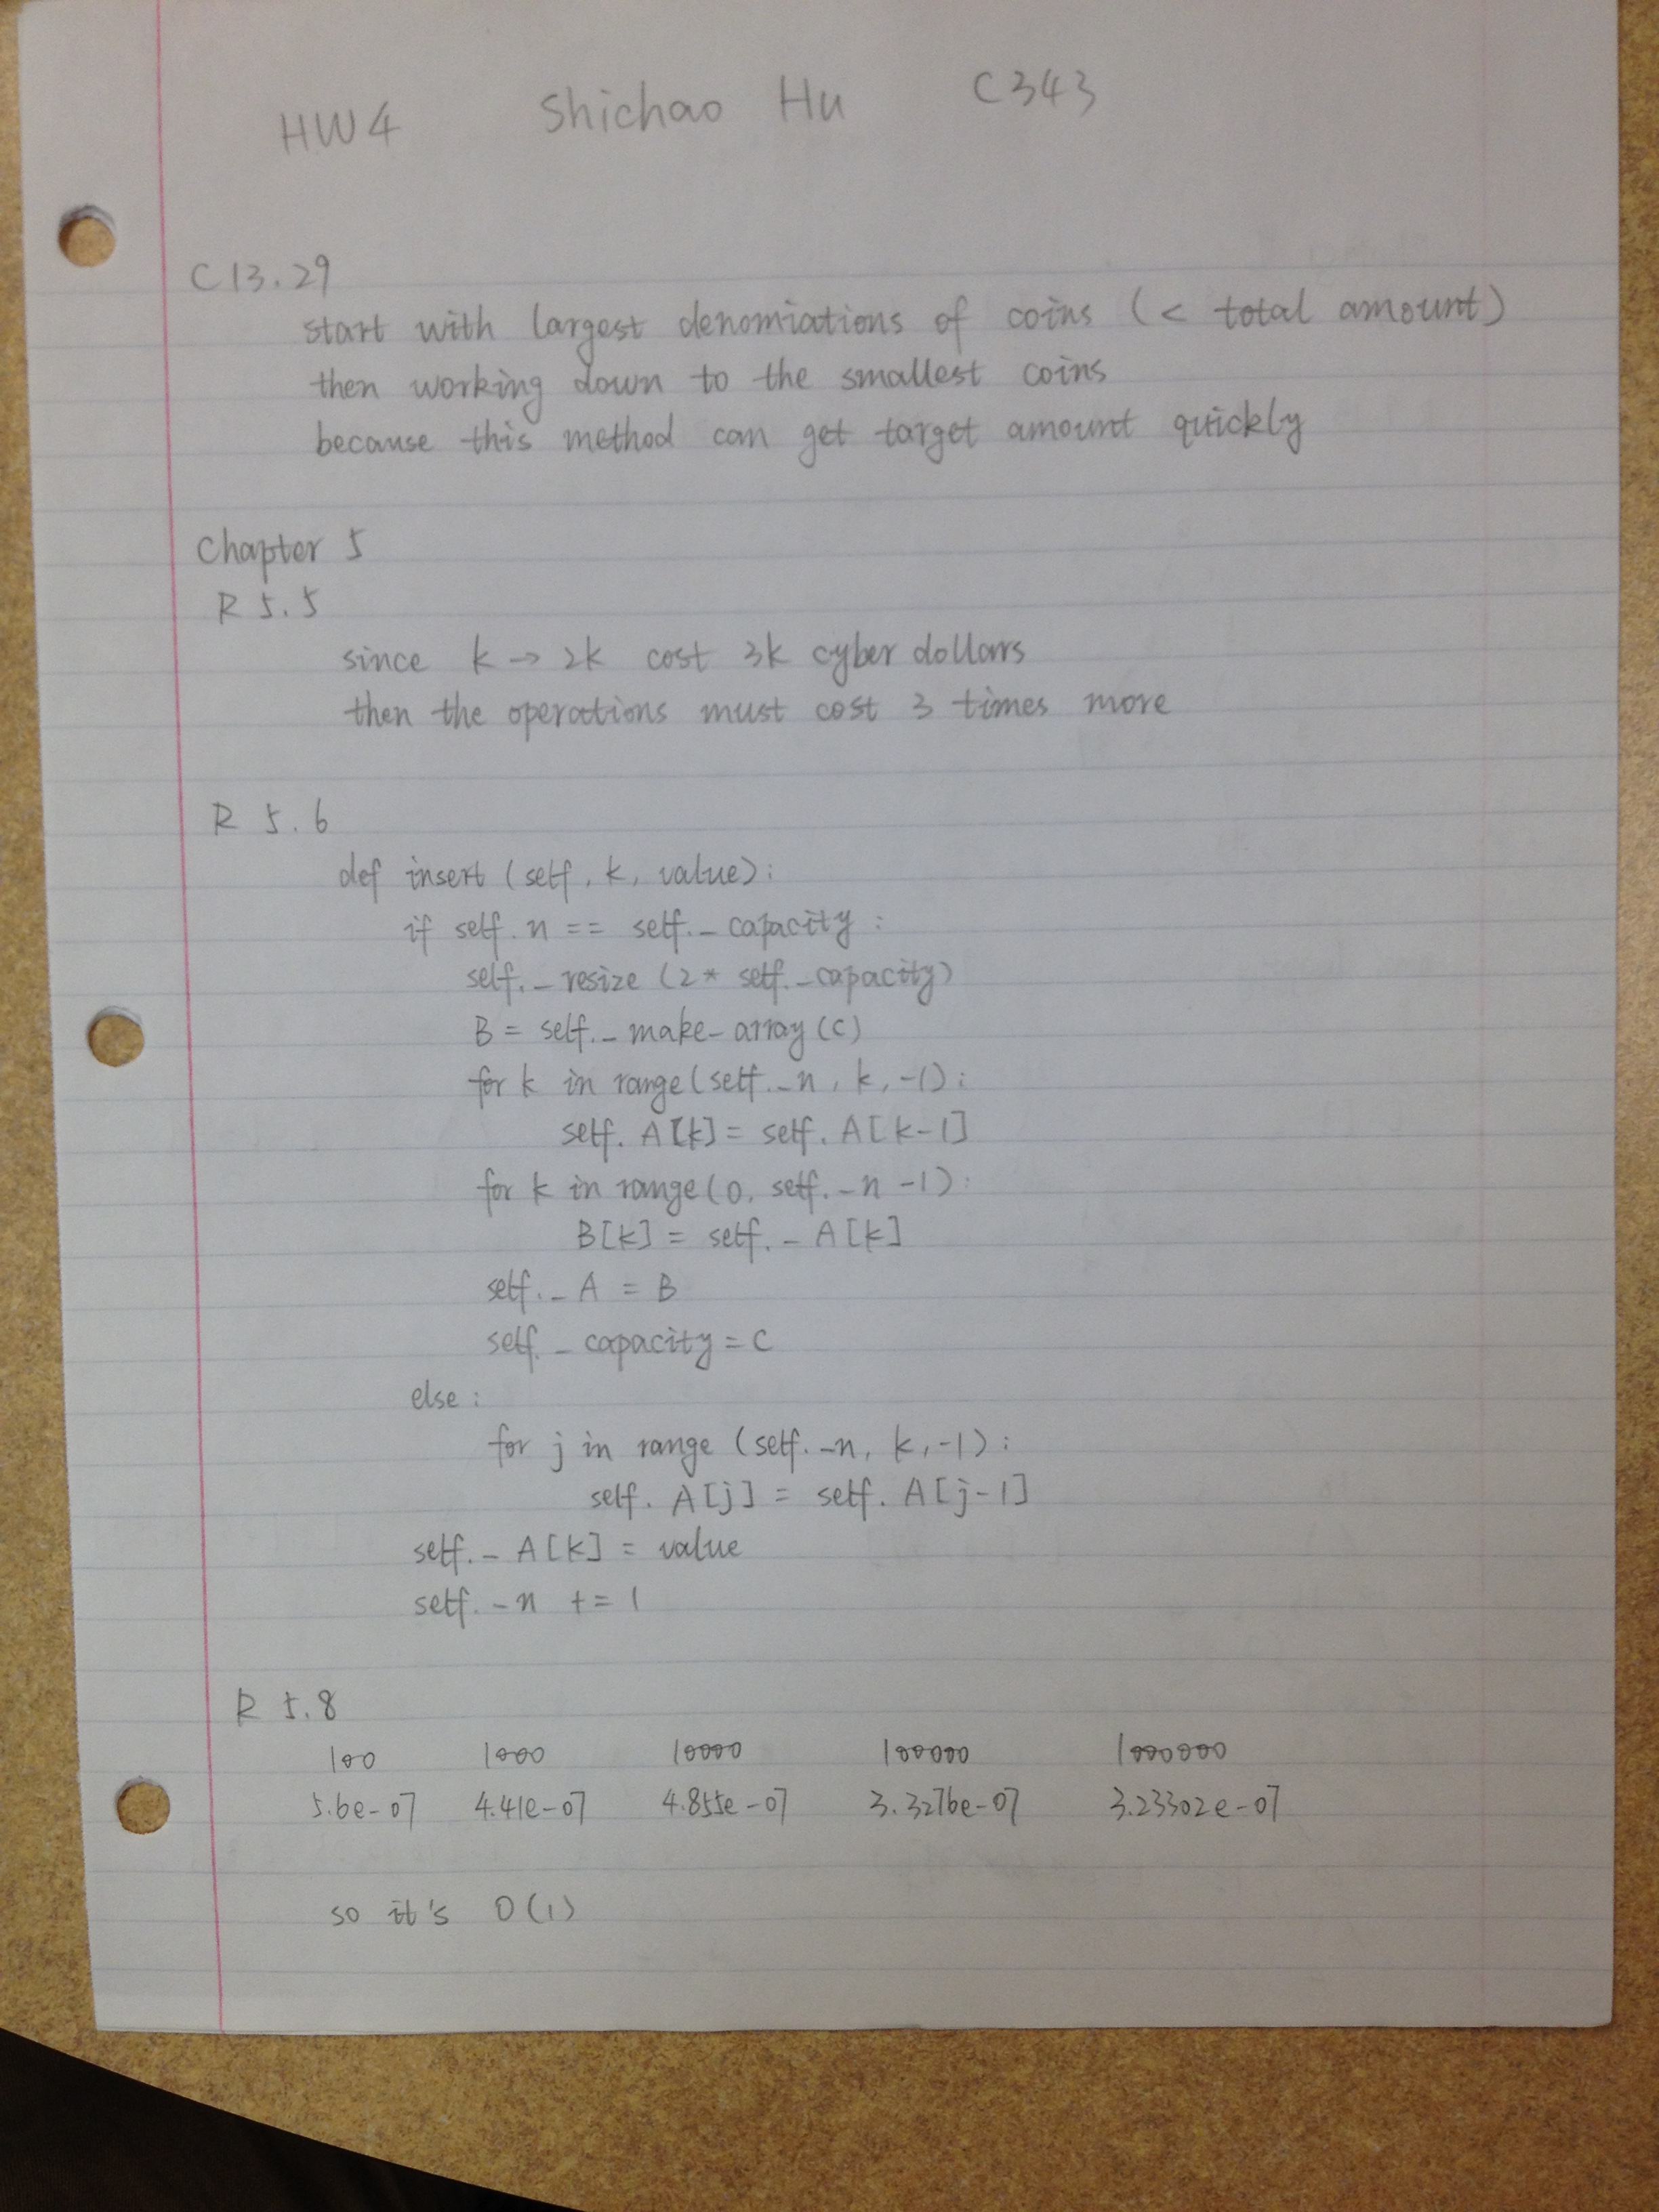 HW4 Shichao Hu C343
C13.29
start with largest denomiations of coins (< total amount)
then working down to the smallest coins
because this method can get target amount quickly
Chapter 5
R 5.5
since k → 2k cost 3k cyber dollars
then the operations must cost 3 times more
R 5.6
def insert (self, k, value):
if self.n == self._capacity:
self._resize (2* self._capacity)
B = self._make_array(c)
for k in range(self._n, k, -1):
self.A[k] = self.A[k-1]
for k in range(0, self._n -1):
B[k] = self._A[k]
self._A = B
self._capacity = c
else:
for j in range (self._n, k, -1):
self.A[j] = self.A[j-1]
self._A[k] = value
self._n += 1
R 5.8
100 1000 10000 100000 1000000
5.6e-07 4.41e-07 4.855e-07 3.3276e-07 3.23302e-07
so it's O(1)